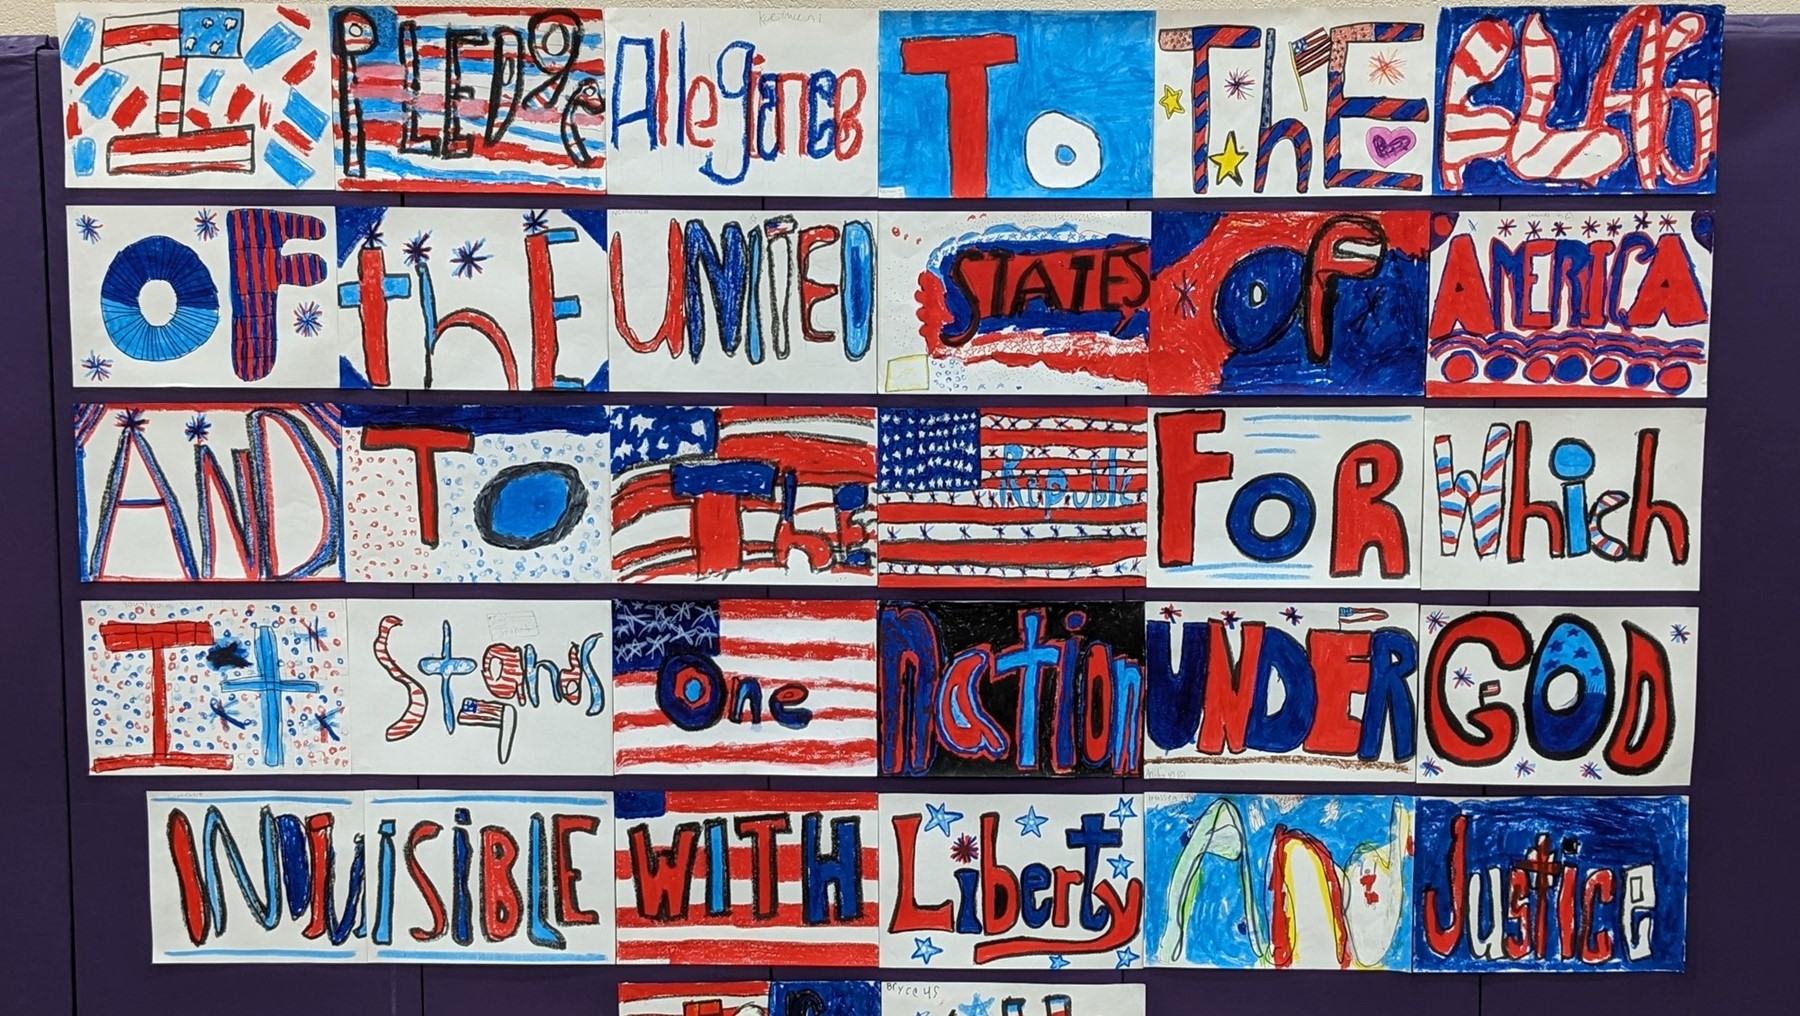 I PLEDge Allegiance To ThE FLAG
OF thE UNITED STATES OF AMERICA
AND TO The Republic FOR Which
It Stands One Nation UNDER GOD
INDIVISIBLE WITH Liberty AnD Justice
Bryce 4S